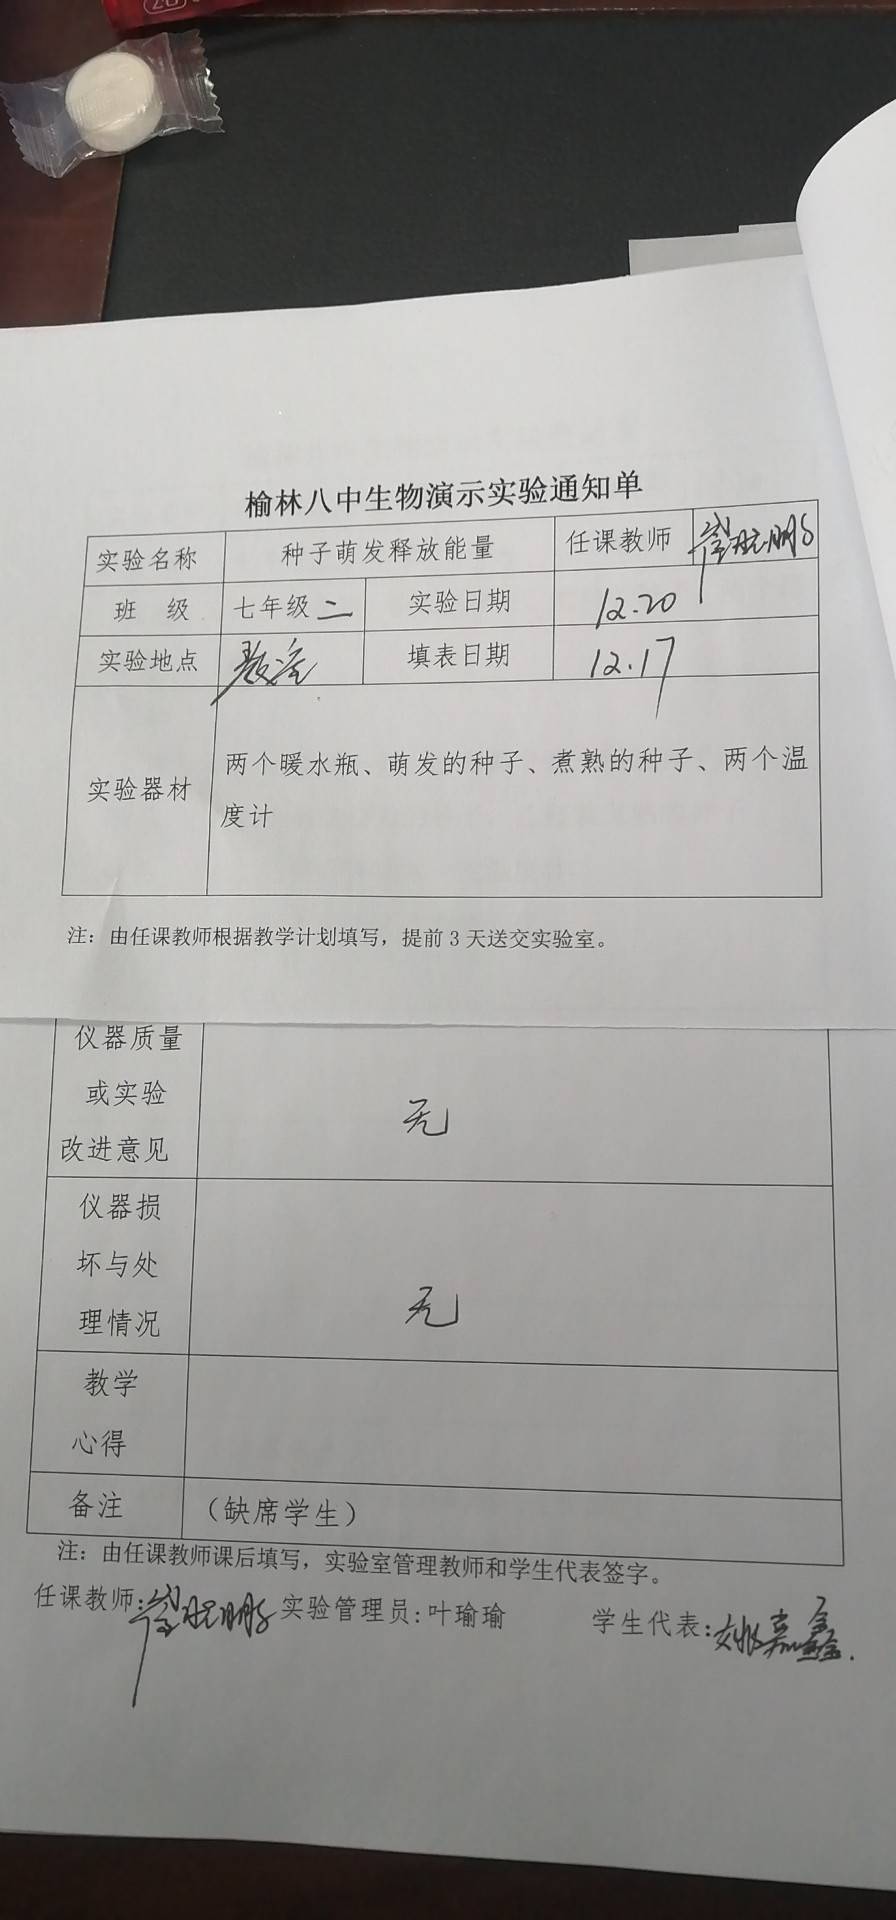 榆林八中生物演示实验通知单
实验名称 种子萌发释放能量 任课教师
班 级 七年级二 实验日期 12.20
实验地点 教室 填表日期 12.17
实验器材 两个暖水瓶、萌发的种子、煮熟的种子、两个温
度计
注：由任课教师根据教学计划填写，提前3天送交实验室。
仪器质量
或实验
改进意见
无
仪器损
坏与处
理情况
无
教学
心得
备注 （缺席学生）
注：由任课教师课后填写，实验室管理教师和学生代表签字。
任课教师: 实验管理员:叶瑜瑜 学生代表:姚嘉鑫.